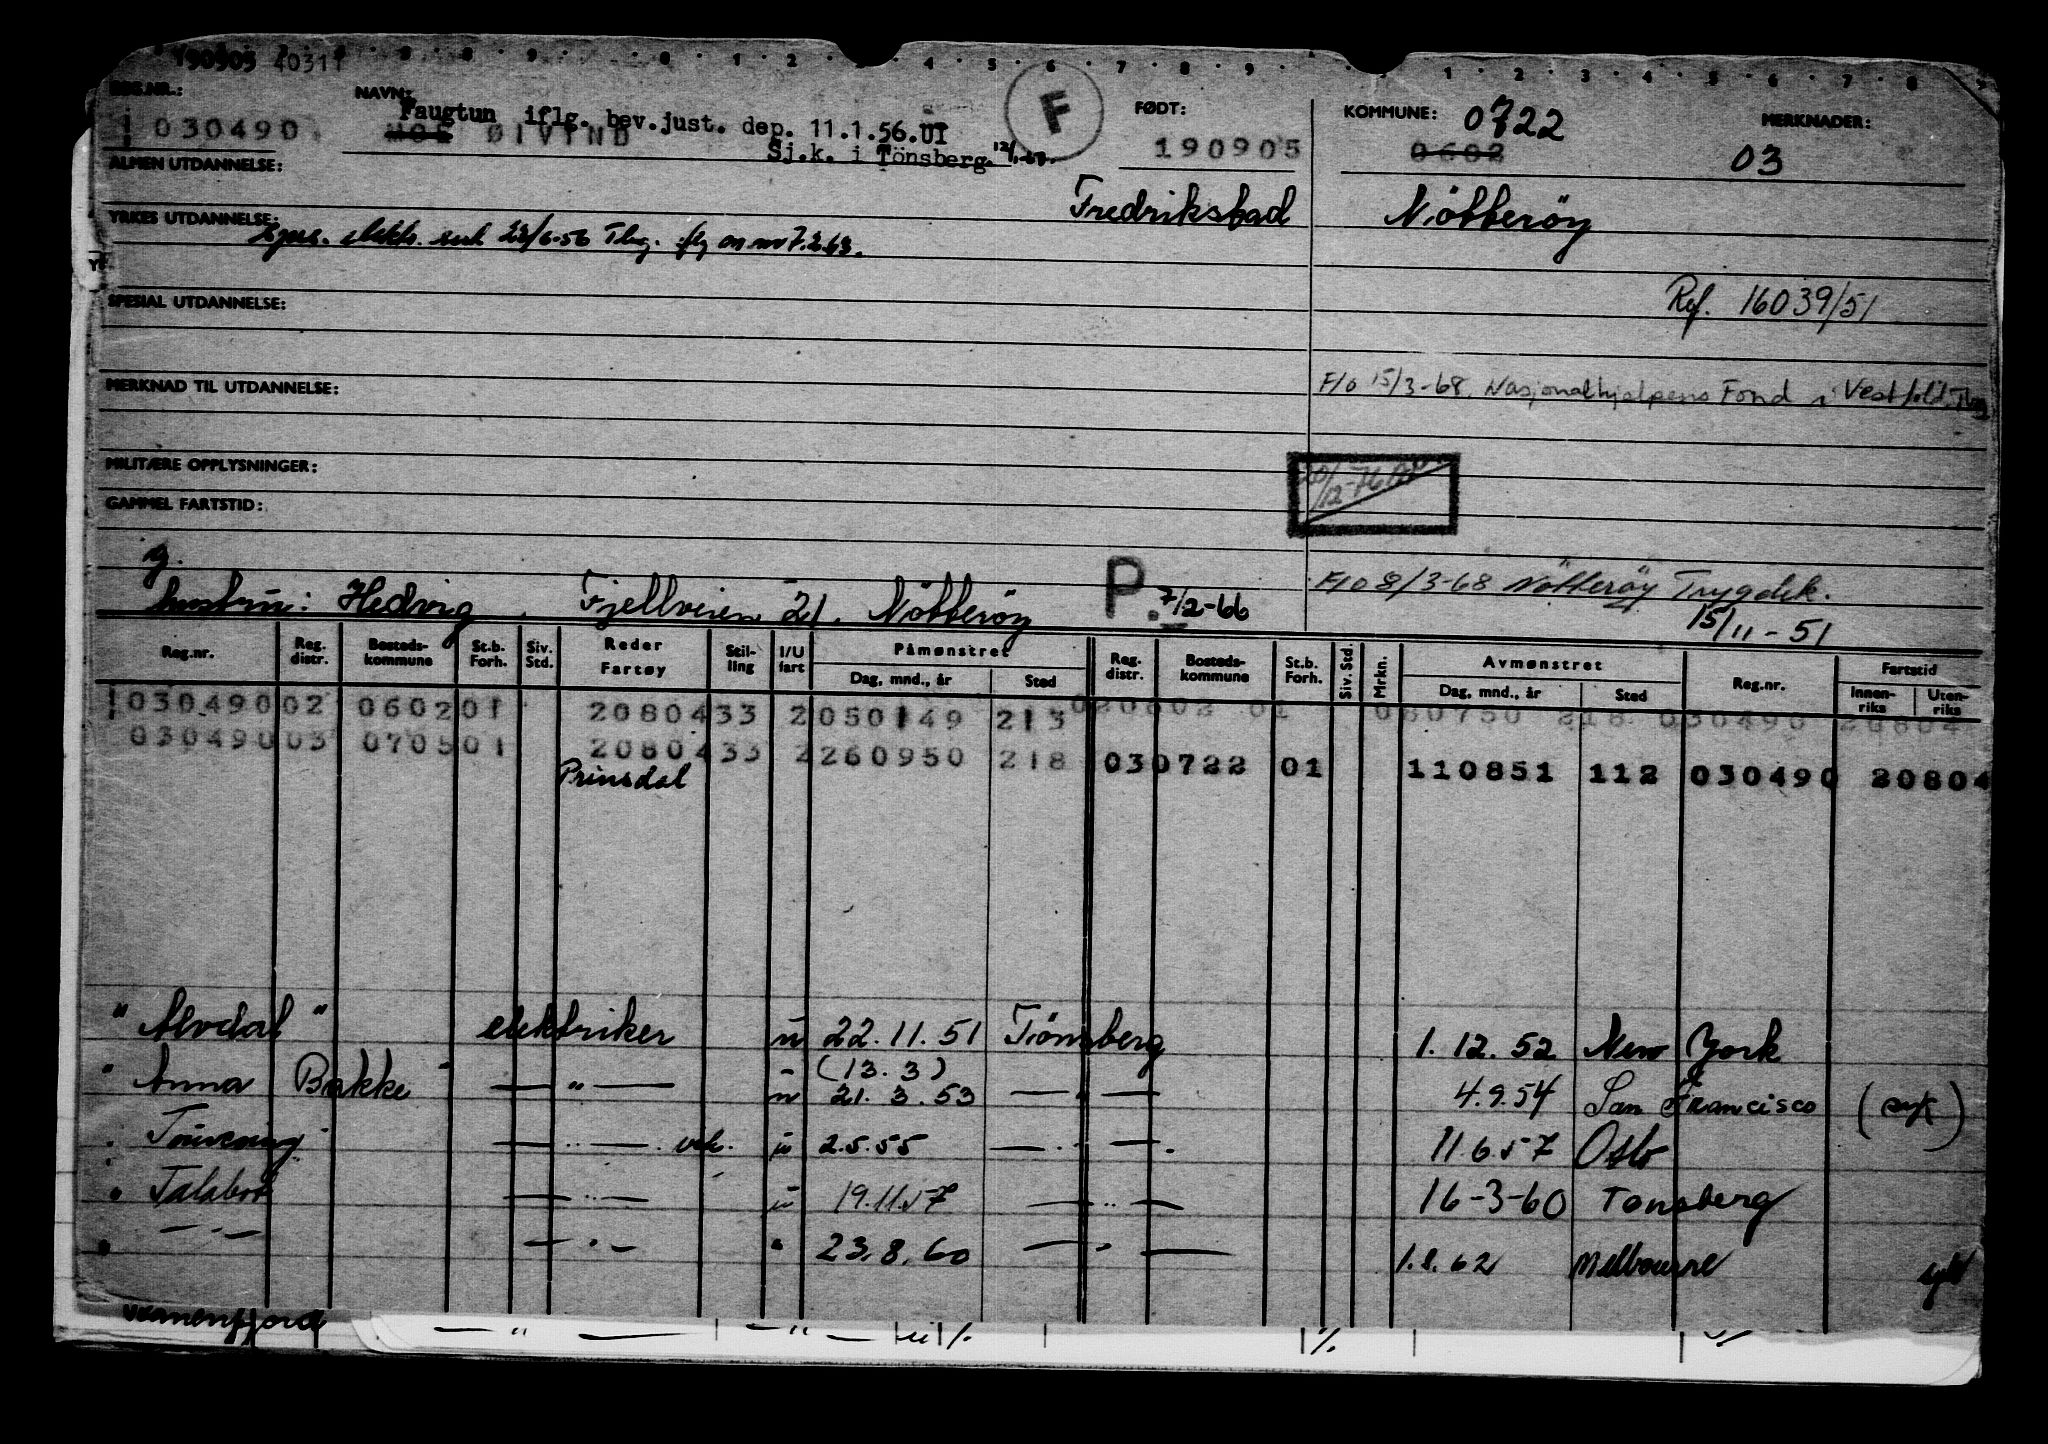 190905 40311
REG.NR.: NAVN: FØDT: KOMMUNE: 0722 MERKNADER:
Faugtun iflg. bev.just. dep. 11.1.56. UI F
030490 MOE ØIVIND 190905 0602 03
Sj.k. i Tönsberg.
ALMEN UTDANNELSE:
Fredrikstad Nötteröy
YRKES UTDANNELSE:
23/6-56 Tbg. 7.2.63.
Ref. 16039/51
SPESIAL UTDANNELSE:
MERKNAD TIL UTDANNELSE: F/o 15/3-68. Nasjonalhjelpens Fond i Vestfold, Tbg
MILITÆRE OPPLYSNINGER:
20/12-76
GAMMEL FARTSTID:
g.
hustru: Hedvig, Fjellveien 21. Nötteröy P. 7/2-66 F/o 8/3-68 Nötteröy Trygdek.
15/11-51
Reg.nr. Reg. distr. Bosteds-kommune St.b. Forh. Siv. Std. Reder Fartøy Stil-ling I/U fart Påmønstret Reg. distr. Bosteds-kommune St.b. Forh. Siv. Std. Mrkn. Avmønstret Reg.nr. Fartstid
Dag, mnd., år Sted Dag, mnd., år Sted Innen-riks Uten-riks
030490 02 0602 01 20804 33 2 050149 213 020602 01 080750 218 030490 20804
030490 03 0705 01 20804 33 2 260950 218 030722 01 110851 112 030490 20804
Prinsdal
" Alvdal " elektriker u 22.11.51 Tönsberg 1.12.52 New York
(13.3)
" Anna Bakke " — " — u 21.3.53 — " — 4.9.54 San Francisco (syk)
— " — u 2.5.55 — " — 11.6.57 Oslo
" Talabot — " — u 19.11.57 — " — 16-3-60 Tønsberg
" — " — — " — " 23.8.60 — " — 1.8.62 Melbourne syk
— " — — " —